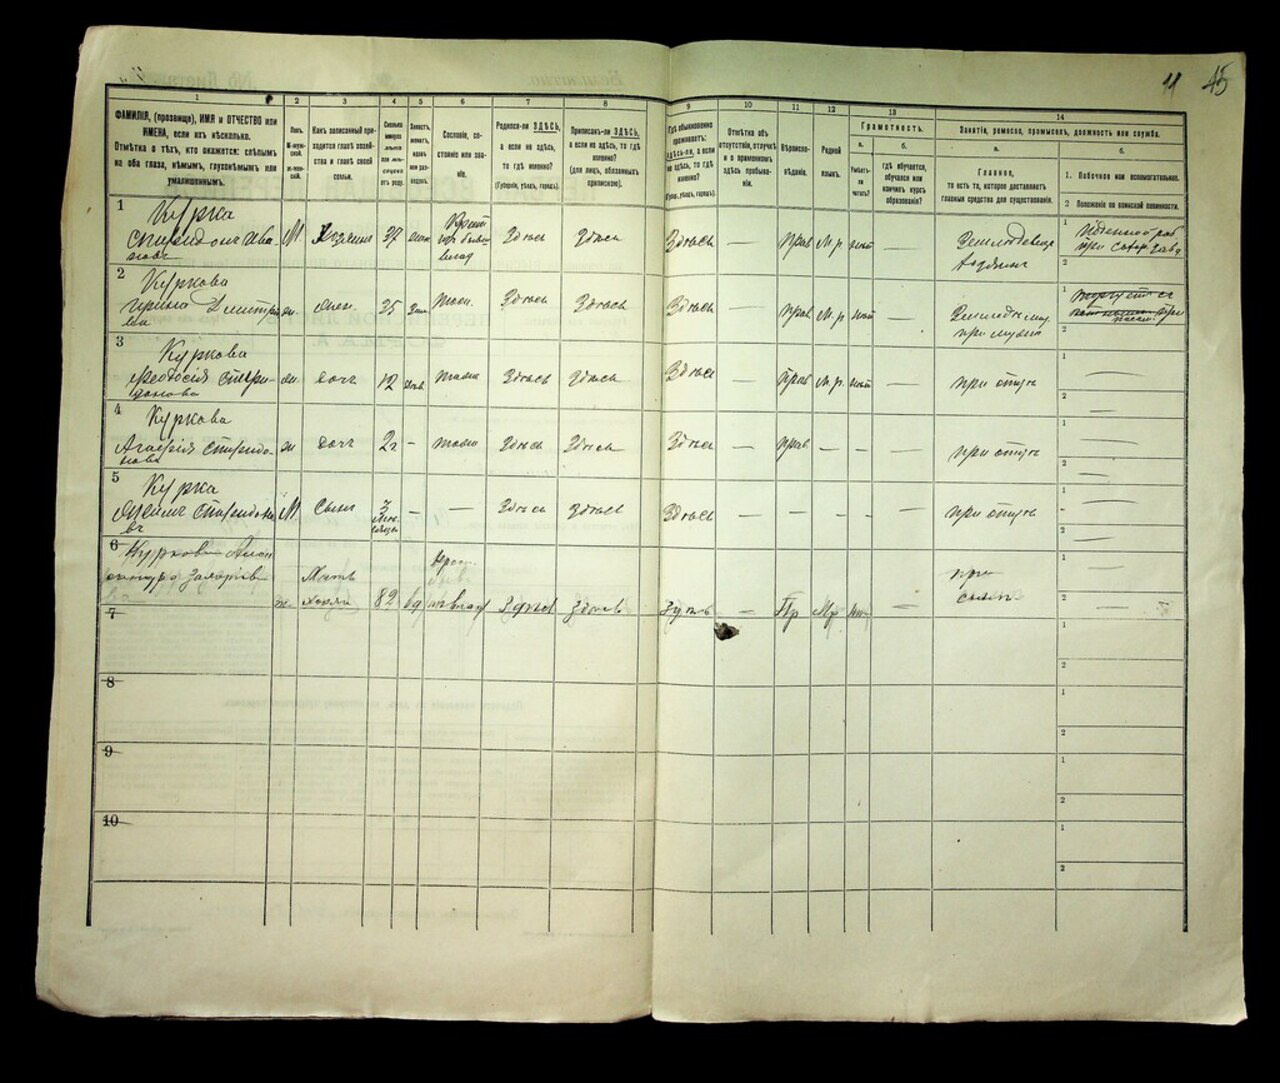 11 45
1 2 3 4 5 6 7 8 9 10 11 12 13 14
ФАМИЛІЯ, (прозвище), ИМЯ и ОТЧЕСТВО или
ИМЕНА, если ихъ нѣсколько.
Отмѣтка о тѣхъ, кто окажется: слѣпымъ
на оба глаза, нѣмымъ, глухонѣмымъ или
умалишеннымъ.
Полъ.
М-мужской.
Ж-женскій.
Какъ записанный приходится главѣ хозяйства и главѣ своей семьи.
Сколько минуло лѣтъ или мѣсяцевъ отъ роду.
Холостъ, женатъ, вдовъ или разведенъ.
Сословіе, состояніе или званіе.
Родился-ли ЗДѢСЬ,
а если не здѣсь,
то гдѣ именно?
(Губернія, уѣздъ, городъ).
Приписанъ-ли ЗДѢСЬ,
а если не здѣсь, то гдѣ
именно?
(для лицъ, обязанныхъ
припискою).
Гдѣ обыкновенно
проживаетъ:
здѣсь-ли, а если
не здѣсь, то гдѣ
именно?
(Губ., уѣздъ, городъ).
Отмѣтка объ
отсутствіи, отлучкѣ
и о временномъ
здѣсь пребываніи.
Вѣроисповѣданіе.
Родной
языкъ.
Грамотность.
а.
Умѣетъ-ли
читать?
б.
гдѣ обучается,
обучался или
кончилъ курсъ
образованія?
Занятіе, ремесло, промыселъ, должность или служба.
а.
Главное,
то есть то, которое доставляетъ
главныя средства для существованія.
б.
1. Побочное или вспомогательное.
2 Положеніе по воинской повинности.
1 Курка
Спиридонъ Ива-
новъ М. Хозяинъ 37 Крест изъ бывш влад Здѣсь Здѣсь Здѣсь — Прав М. р. нѣт —
Хозяинъ
при сахар. зав.
2 Куркова
Ирина Дмитріе
ва ж. жен. 35 зам. тоже. Здѣсь Здѣсь Здѣсь — Прав М. р нѣт —
при мужѣ
3 Куркова
Феодосія Спири-
донова ж. дочь 12 дѣв тоже Здѣсь Здѣсь Здѣсь — Прав М. р. нѣт — при отцѣ — —
4 Куркова
Агафія Спиридо-
нова ж дочь 2г — тоже Здѣсь Здѣсь Здѣсь — Прав — — — при отцѣ — —
5 Курка
Спиридоно
въ М. Сынъ 3 — — Здѣсь Здѣсь Здѣсь — — — — — при отцѣ — —
6 Куркова
Мать
хозяи 82 Здѣсь Здѣсь — Пр Мр нѣт —
при
сынѣ
7
8
9
10